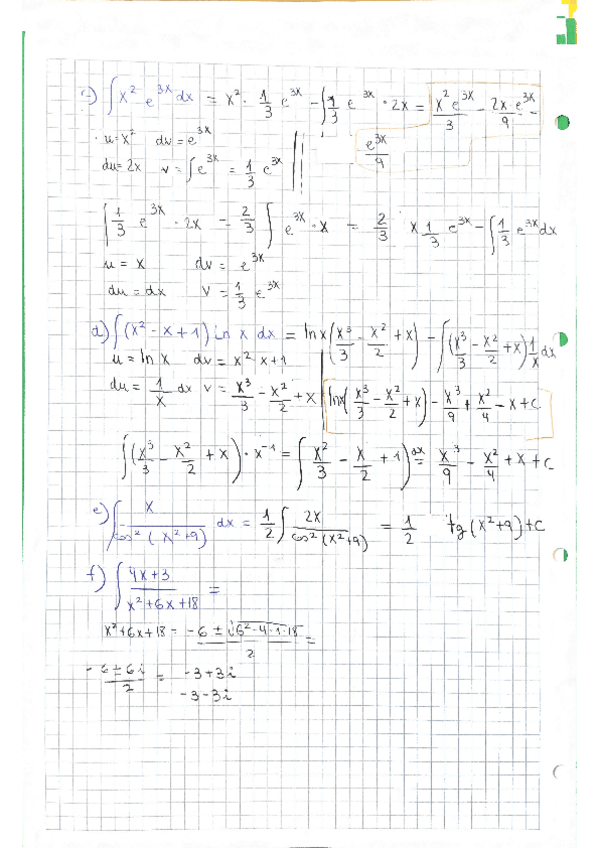 c) ∫ x² e^3x dx = x² · 1/3 e^3x − ∫ 1/3 e^3x · 2x = x² e^3x/3 − 2x · e^3x/9 −
· u = x² dv = e^3x e^3x/9
du = 2x v = ∫ e^3x = 1/3 e^3x
∫ 1/3 e^3x · 2x = 2/3 ∫ e^3x · x = 2/3 x 1/3 e^3x − ∫ 1/3 e^3x dx
u = x dv = e^3x
du = dx v = 1/3 e^3x
d) ∫ (x² − x + 1) ln x dx = ln x (x³/3 − x²/2 + x) − ∫ (x³/3 − x²/2 + x) 1/x dx
u = ln x dv = x² · x + 1
du = 1/x dx v = x³/3 − x²/2 + x ln x (x³/3 − x²/2 + x) − x³/9 + x²/4 − x + c
∫ (x³/3 − x²/2 + x) · x^-1 = ∫ (x²/3 − x/2 + 1) dx = x³/9 − x²/4 + x + c
e) ∫ x/cos² (x² + 9) dx = 1/2 ∫ 2x/cos² (x² + 9) = 1/2 tg (x² + 9) + c
f) ∫ 4x + 3/x² + 6x + 18 =
x² + 6x + 18 = −6 ± √6² − 4 · 1 · 18/2 =
−6 ± 6i/2 = −3 + 3i
−3 − 3i